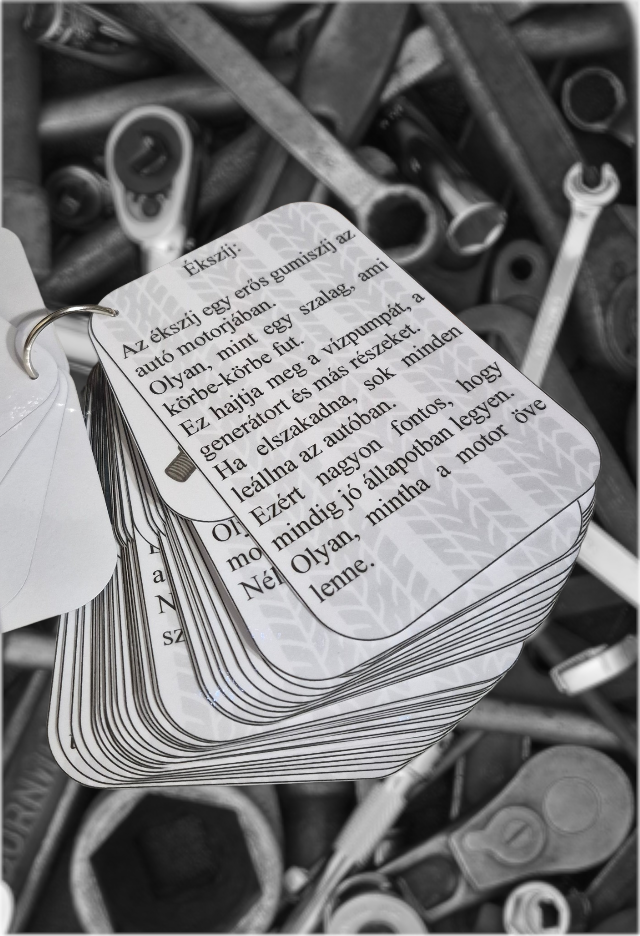 Ékszíj:
Az ékszíj egy erős gumiszíj az
autó motorjában.
Olyan, mint egy szalag, ami
körbe-körbe fut.
Ez hajtja meg a vízpumpát, a
generátort és más részeket.
Ha elszakadna, sok minden
leállna az autóban.
Ezért nagyon fontos, hogy
mindig jó állapotban legyen.
Olyan, mintha a motor öve
lenne.
Ol
mo
Nél
a
N
sz